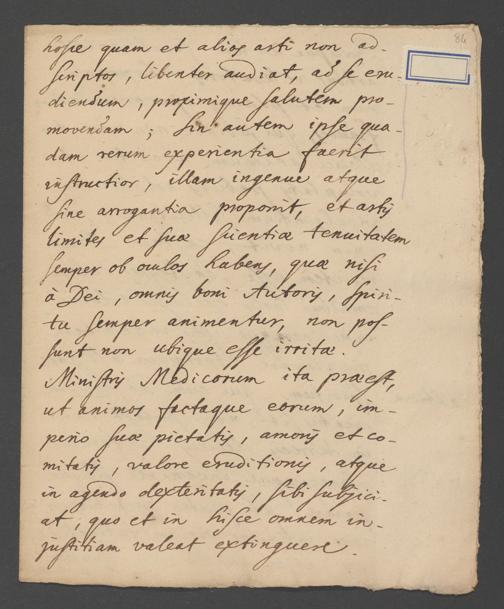 86
hosce quam et alios arti non ad-
scriptos, libenter audiat, ad se eru-
diendum, proximique salutem pro-
movendam; sin autem ipse qua-
dam rerum experientia fuerit
instructior, illam ingenue atque
sine arrogantia proponit, et artis
limites et suæ scientiæ tenuitatem
semper ob oculos habens, quæ nisi
à Dei, omnis boni Autoris, spiri-
tu semper animentur, non pos-
sunt non ubique esse irritæ.
Ministris Medicorum ita præest,
ut animos factaque eorum, im-
perio suæ pietatis, amoris et co-
mitatis, valore eruditionis, atque
in agendo dexteritatis, sibi subjici-
at, quo et in hisce omnem in-
justitiam valeat extinguere.